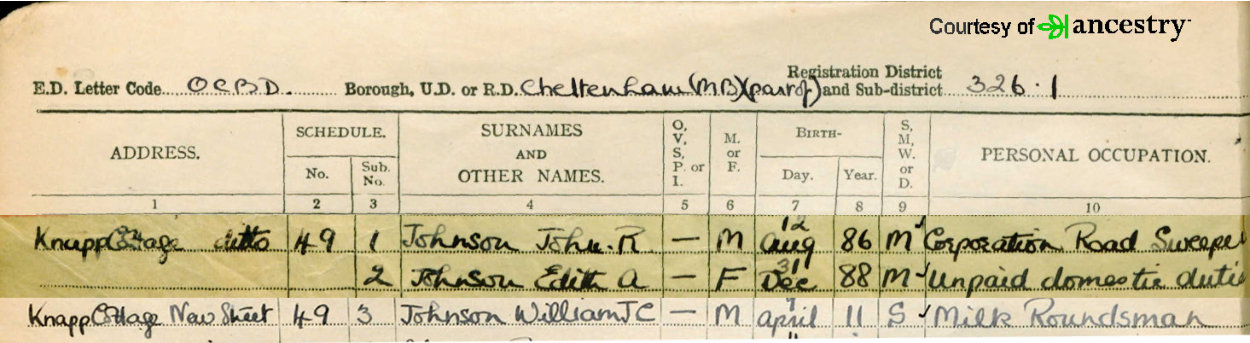 Courtesy of ancestry
Registration District
E.D. Letter Code OCBD. Borough, U.D. or R.D. Cheltenham (MB) (part of) and Sub-district 326.1
ADDRESS. SCHEDULE. SURNAMES AND OTHER NAMES. O, V, S, P. or I. M. or F. BIRTH- S, M, W. or D. PERSONAL OCCUPATION.
No. Sub. No. Day. Year.
1 2 3 4 5 6 7 8 9 10
Knapp Cottage ditto 49 1 Johnson John. R. — M 12 Aug 86 M Corporation Road Sweepe
2 Johnson Edith A — F 31 Dec 88 M Unpaid domestic duti
Knapp Cottage New Street 49 3 Johnson William J C — M 7 April 11 S Milk Roundsman